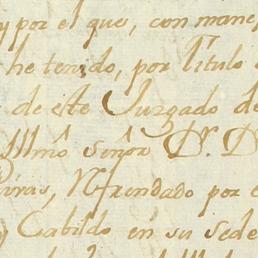 y por el que, con mane
he tenido, por Título
de este Juzgado de
Illmô señor Dr. D
Rivas, Refrendado por e
y Cabildo en su sede